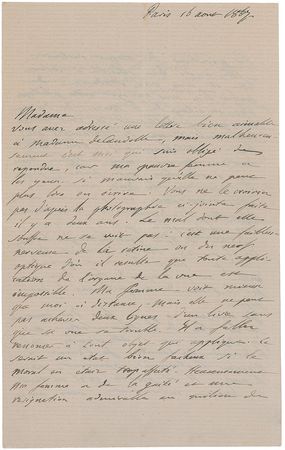 Paris 16 août 1867.
Madame
vous avez adressé une lettre bien aimable
à madame delandelle, mais malheureu-
sement c'est moi qui suis obligé de
repondre, car ma pauvre femme a
les yeux si mauvais qu'elle ne peut
plus lire ou écrire. Vous ne le croiriez
pas d'après la photographie ci-jointe faite
il y a deux ans. Le mal dont elle
souffre ne se voit pas: c'est une faiblesse
nerveuse de la retine ou du nerf
optique d'où il resulte que toute appli-
cation de l'organe de la vue est
impossible. Ma femme voit mieux
que moi à distance, mais elle ne peut
pas achever deux lignes d'un livre sans
que sa vue se trouble. Il a fallu
renoncer à tout objet qui applique. Ce
serait un état bien facheux si le
moral en était affecté. Heureusement
ma femme a de la gaîté et une
resignation admirable au milieu de